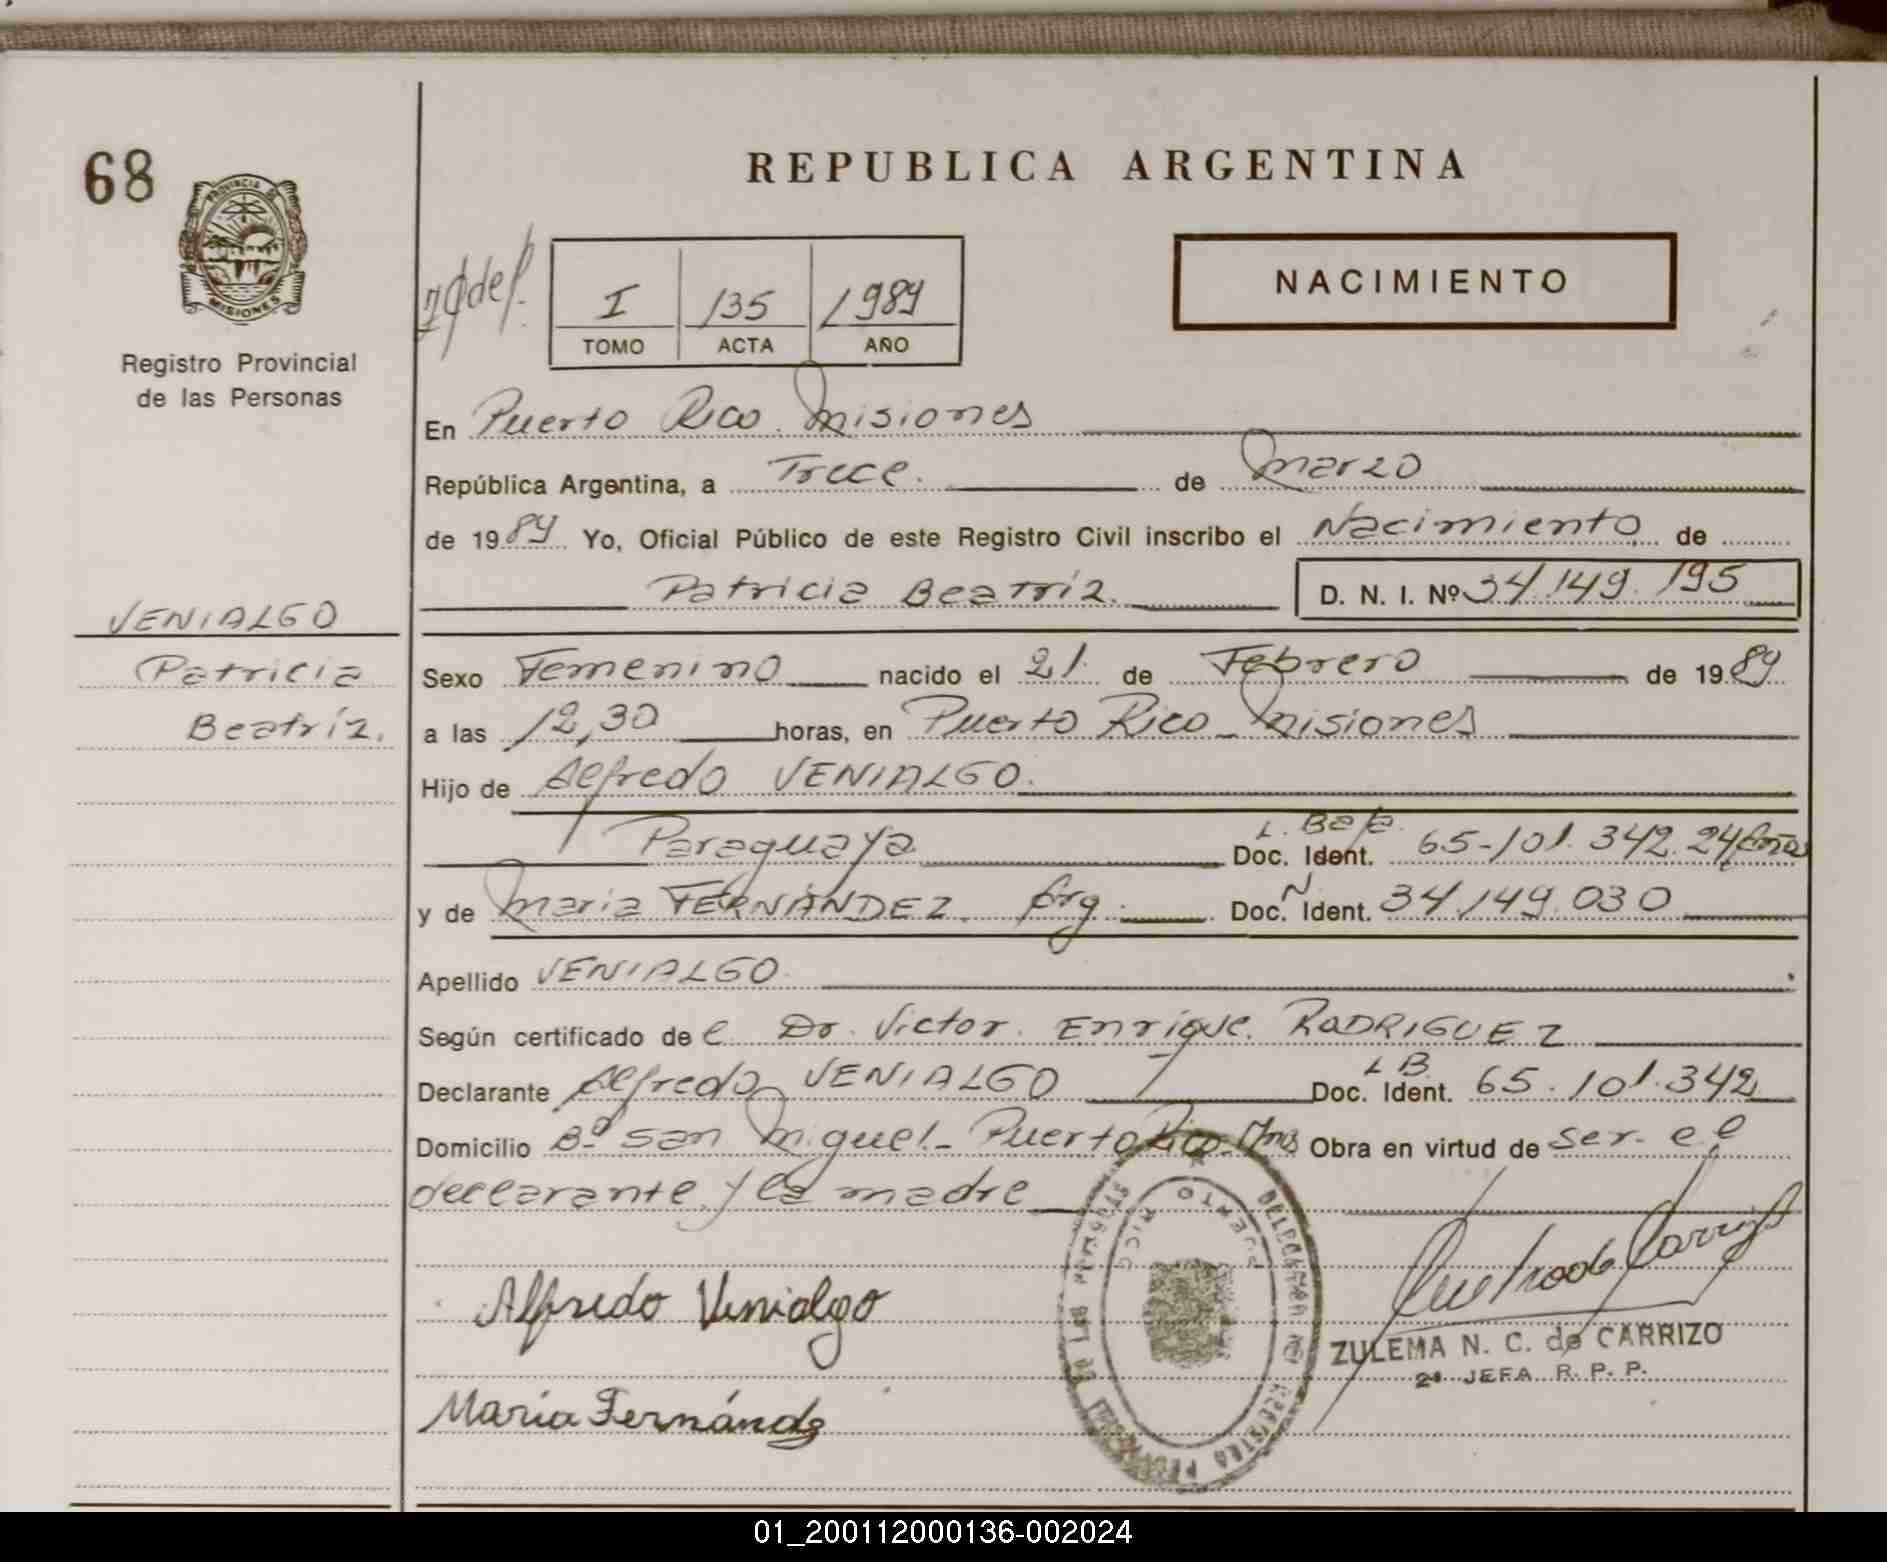 68
PROVINCIA DE
MISIONES
Registro Provincial
de las Personas
REPUBLICA ARGENTINA
NACIMIENTO
I 135 1989
TOMO ACTA AÑO
En Puerto Rico. Misiones
República Argentina, a Trece. de Marzo
de 1989 Yo, Oficial Público de este Registro Civil inscribo el Nacimiento de
Patricia Beatríz. D. N. I. Nº 34.149.195
VENIALGO
Patricia
Beatríz.
Sexo Femenino nacido el 21. de Febrero de 1989
a las 12,30 horas, en Puerto Rico - Misiones
Hijo de Alfredo VENIALGO.
Paraguaya L. Baja. Doc. Ident. 65-101.342. 24 años
y de Maria FERNÁNDEZ. Arg. Doc. Ident. 34.149.030
Apellido VENIALGO.
Según certificado de l Dr. Victor. Enrique. RODRIGUEZ
Declarante Alfredo VENIALGO L B. Doc. Ident. 65.101.342
Domicilio Bº San Miguel - Puerto Rico - Mnes Obra en virtud de ser. el
declarante y la madre
Alfredo Venialgo
María Fernández
DELEGACION DEL REGISTRO PROVINCIAL DE LAS PERSONAS
PUERTO RICO
ZULEMA N. C. de CARRIZO
2ª JEFA R. P. P.
01_200112000136-002024